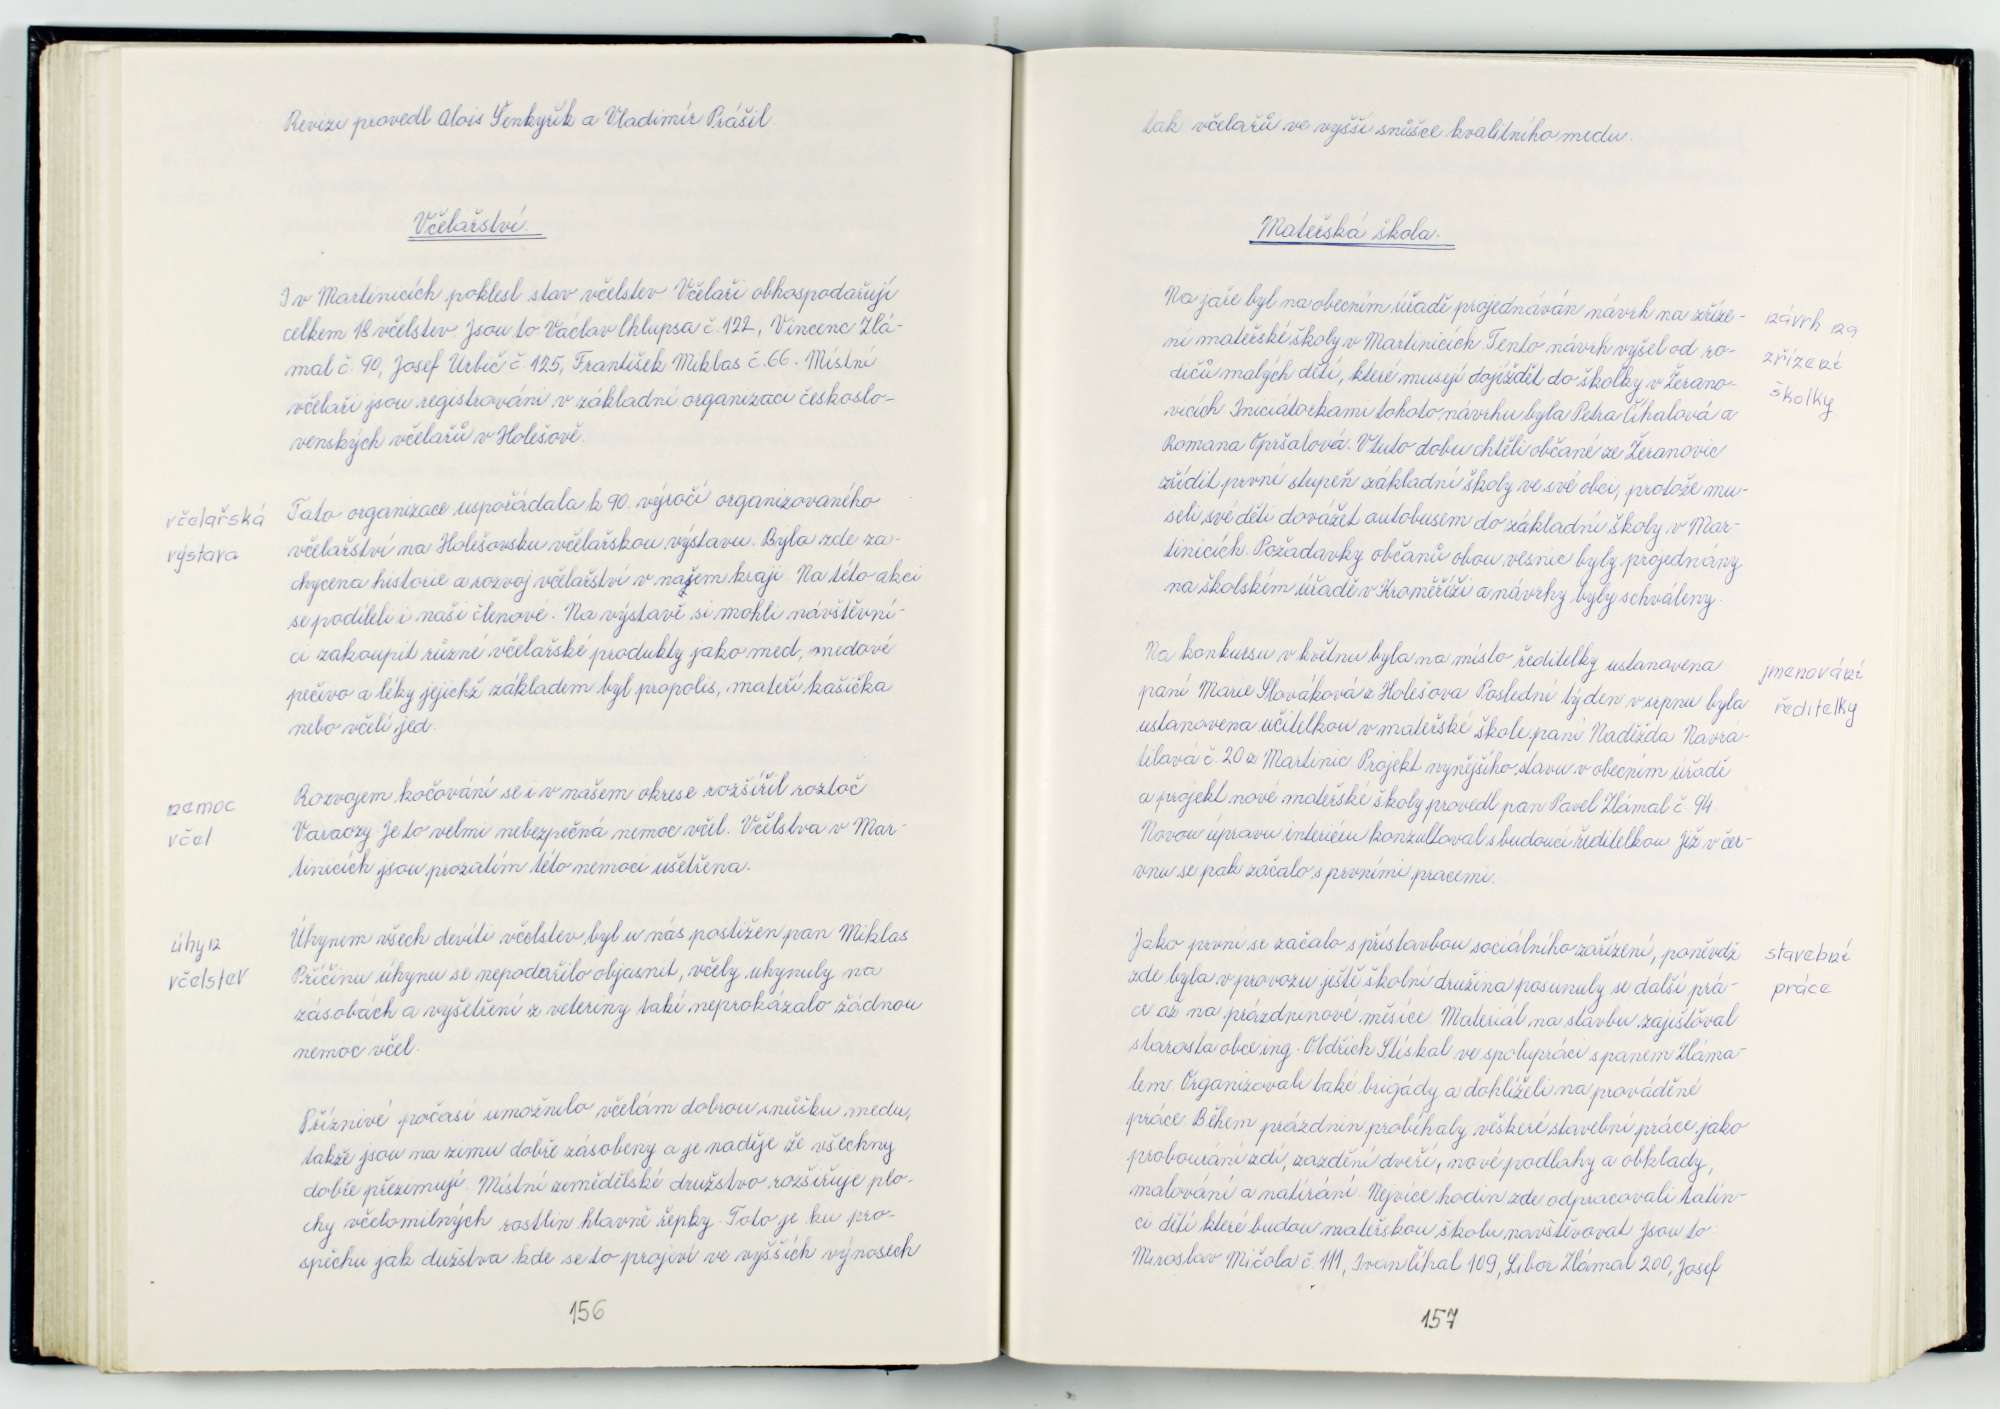 Revizi provedl Alois Šenkyřík a Vladimír Prášil
Včelařství.
I v Martinicích poklesl stav včelstev Včelaři obhospodařují
celkem 18 včelstev Jsou to Václav Chlupsa č. 122, Vincenc Zlá-
mal č. 90, Josef Urbič č. 125, František Miklas č. 66. Místní
včelaři jsou registrováni v základní organizaci českoslo-
venských včelařů v Holešově.
včelařská
výstava
Tato organizace uspořádala k 90. výročí organizovaného
včelařství na Holešovsku včelařskou výstavu. Byla zde za-
chycena historie a rozvoj včelařství v našem kraji Na této akci
se podíleli i naši členové. Na výstavě si mohli návštěvní-
ci zakoupit různé včelařské produkty jako med, medové
pečivo a léky jejichž základem byl propolis, mateří kašička
nebo včelí jed.
nemoc
včel
Rozvojem kočování se i v našem okrese rozšířil roztoč
Varaozy Je to velmi nebezpečná nemoc včel. Včelstva v Mar-
tinicích jsou prozatím této nemoci ušetřena.
úhyn
včelstev
Úhynem všech devíti včelstev byl u nás postižen pan Miklas
Příčinu úhynu se nepodařilo objasnit, včely uhynuly na
zásobách a vyšetření z veteriny také neprokázalo žádnou
nemoc včel.
Příznivé počasí umožnilo včelám dobrou snůšku medu,
takže jsou na zimu dobře zásobeny a je naděje že všechny
dobře přezimují. Místní zemědělské družstvo rozšiřuje plo-
chy včelomilných rostlin hlavně řepky. Toto je ku pro-
spěchu jak dužstva kde se to projeví ve vyšších výnosech
156
tak včelařů ve vyšší snůšce kvalitního medu.
Mateřská škola.
Na jaře byl na obecním úřadě projednáván návrh na zříze-
ní mateřské školy v Martinicích. Tento návrh vyšel od ro-
dičů malých dětí, které musejí dojíždět do školky v Žerano-
vicích Iniciátorkami tohoto návrhu byla Petra Číhalová a
Romana Opršalová. V tuto dobu chtěli občané ze Žeranovic
zřídit první stupeň základní školy ve své obci, protože mu-
seli své děti dovážet autobusem do základní školy v Mar-
tinicích. Požadavky občanů obou vesnic byly projednány
na školském úřadě v Kroměříži a návrhy byly schváleny.
návrh na
zřízení
školky
Na konkursu v květnu byla na místo ředitelky ustanovena
paní Marie Slováková z Holešova Poslední týden v srpnu byla
ustanovena učitelkou v mateřské škole paní Naděžda Navrá-
tilová č. 20 z Martinic Projekt nynějšího stavu v obecním úřadě
a projekt nové mateřské školy provedl pan Pavel Zlámal č. 94
Novou úpravu interiéru konzultoval s budoucí ředitelkou Již v čer-
vnu se pak začalo s prvními pracemi.
jmenování
ředitelky
Jako první se začalo s přístavbou sociálního zařízení, poněvdž
zde byla v provozu ještě školní družina posunuly se další prá-
ce až na prázdninové měsíce Materiál na stavbu zajišťoval
starosta obce ing. Oldřich Stískal ve spolupráci s panem Zláma-
lem Organizovali také brigády a dohlíželi na prováděné
práce Během prázdnin probíhaly věškeré stavební práce jako
probourání zdí, zazdění dveří, nové podlahy a obklady,
malování a natírání. Nejvíce hodin zde odpracovali tatín-
ci dětí které budou mateřskou školu navštěvovat Jsou to
Miroslav Mičola č. 111, Ivan Číhal 109, Libor Zlámal 200, Josef
stavební
práce
157